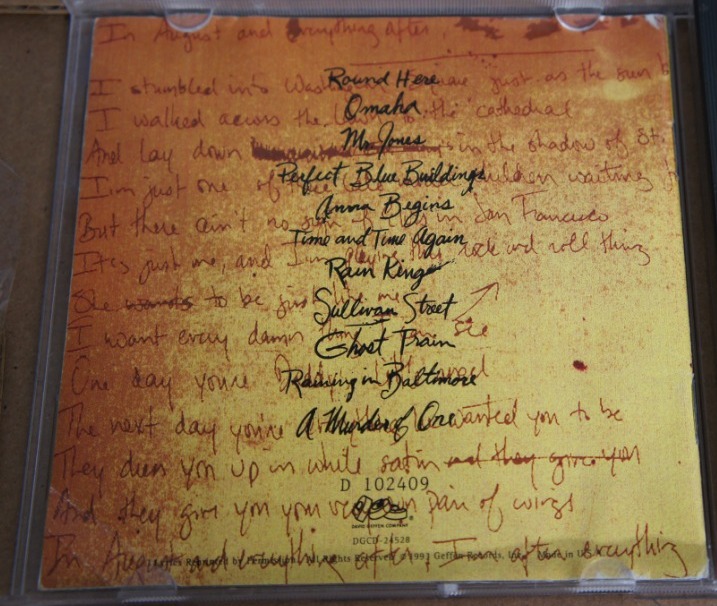 In August and everything after
I stumbled into just as the sun
Round Here
I walked across the the cathedral
Omaha
And lay down in the shadow of St.
Mr. Jones
I'm just one of children waiting
Perfect Blue Buildings
But there ain't no in San Francisco
Anna Begins
It's just me, and I'm playing this rock and roll thing
Time and Time Again
Rain King
She wants to be just like me
Sullivan Street
I want every damn to see
Ghost Train
One day you're
Raining in Baltimore
The next day you're wanted you to be
A Murder of One
They dress you up in white satin and they give you
D 102409
And they give you your very own pair of wings
DAVID GEFFEN COMPANY
DGCD-24528
In August and everything after, I after everything
Reprinted by Permission. All Rights Reserved. ©1993 Geffen Records, Inc. Made in